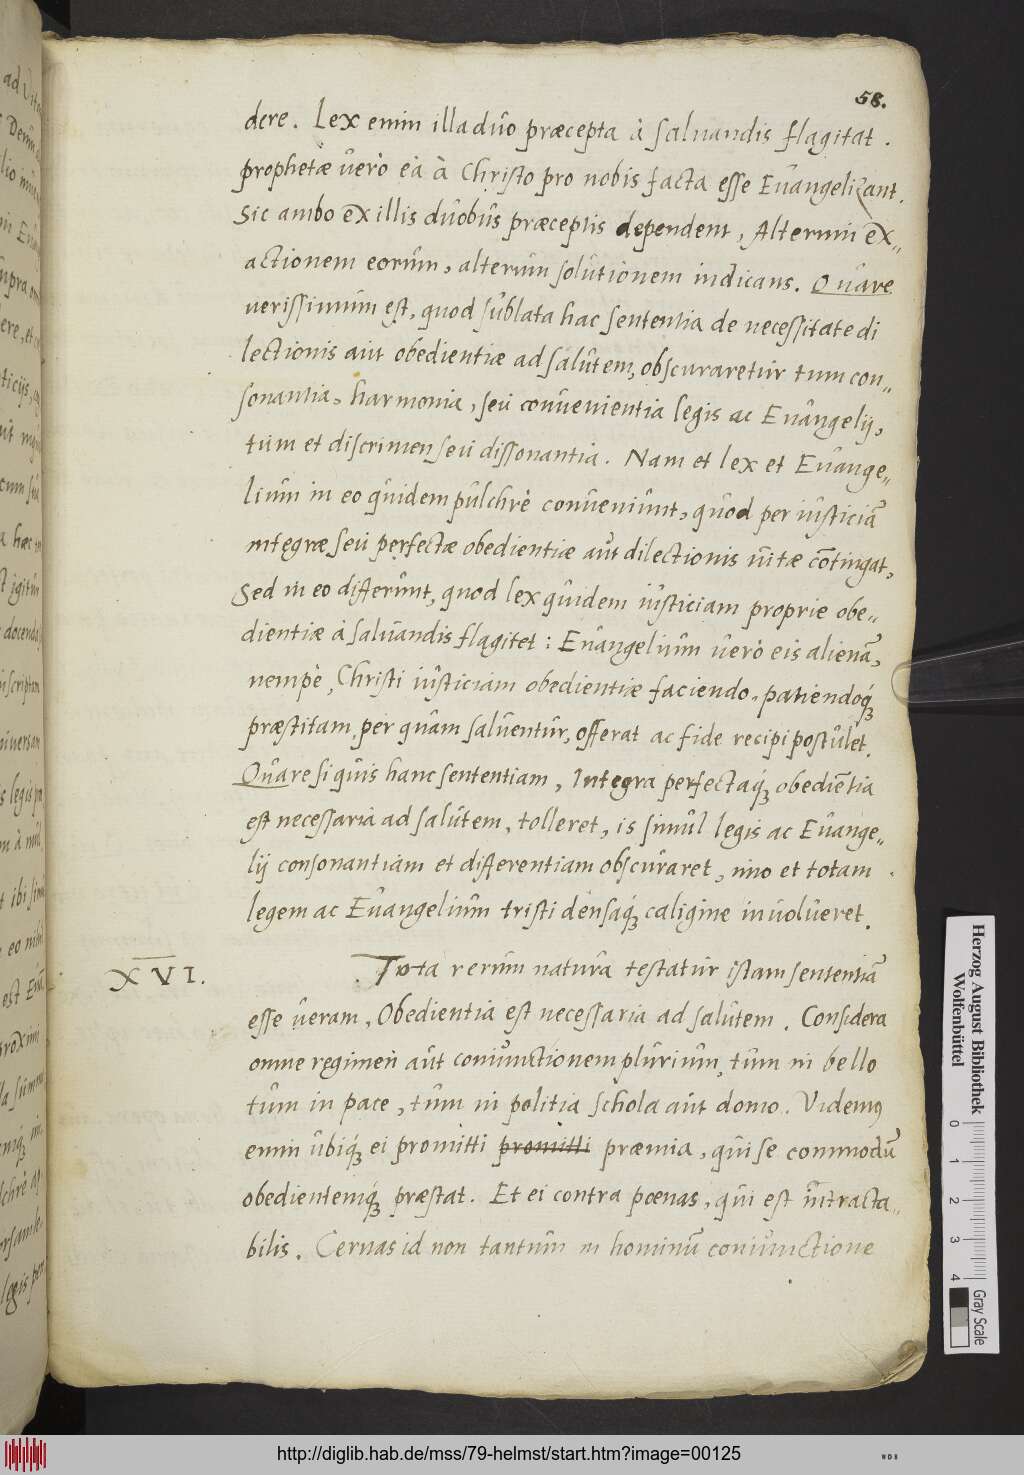 58.
dere. Lex enim illa duo præcepta à saluandis flagitat.
prophetæ uerò ea à Christo pro nobis facta esse Euangelizant.
Sic ambo ex illis duobus præceptis dependent, Alterum ex„
actionem eorum, alterum solutionem indicans. Quare
uerissimum est, quod sublata hac sententia de necessitate di
lectionis aut obedientiæ ad salutem, obscuraretur tum con„
sonantia, harmonia, seu conuenientia legis ac Euangelij,
tum et discrimen seu dissonantia. Nam et lex et Euange„
lium in eo quidem pulchrè conueniunt, quod per iusticiā
integræ seu perfectæ obedientiæ aut dilectionis uita cōtingat,
Sed in eo differunt, quod lex quidem iusticiam proprie obe„
dientiæ à saluandis flagitet: Euangelium uerò eis alienā,
nempè, Christi iusticiam obedientiæ faciendo, patiendoq́ꝫ
præstitam, per quam saluentur, offerat ac fide recipi postulet.
Quare si quis hanc sententiam, Integra perfectaq́ꝫ obediētia
est necessaria ad salutem, tolleret, is simul legis ac Euange„
lij consonantiam et differentiam obscuraret, imo et totam
legem ac Euangelium tristi densaq́ꝫ caligine inuolueret.
XVI. Tota rerum natura testatur istam sententiā
esse ueram, Obedientia est necessaria ad salutem. Considera
omne regimen aut coniunctionem plurium, tum in bello
tum in pace, tum in politia schola aut domo. Videmꝰ
enim ubiq́ꝫ ei promitti promitti præmia, qui se commodū
obedientemq́ꝫ præstat. Et ei contra pœnas, qui est intracta„
bilis. Cernas id non tantum in hominū coniunctione
Herzog August Bibliothek
Wolfenbüttel
0 1 2 3 4
Gray Scale
http://diglib.hab.de/mss/79-helmst/start.htm?image=00125